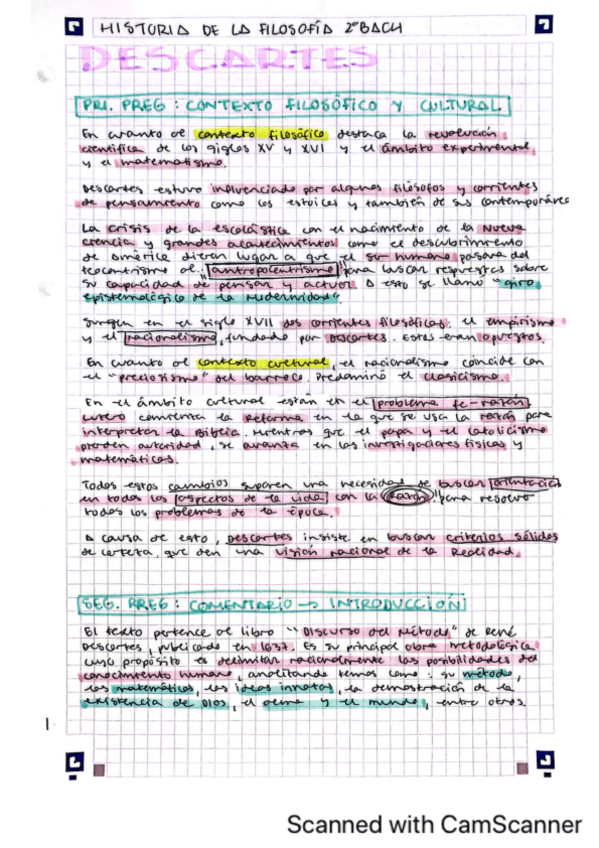 HISTORIA DE LA FILOSOFÍA 2ºBACH
DESCARTES
PRI. PREG : CONTEXTO FILOSÓFICO Y CULTURAL
En cuanto al contexto filosófico destaca la revolución
científica de los siglos XV y XVI y el ámbito experimental
y el matematismo.
Descartes estuvo influenciado por algunos filósofos y corrientes
de pensamiento como los estoicos y también de sus contemporáneo
La crisis de la escolástica con el nacimiento de la nueva
ciencia y grandes acontecimientos como el descubrimiento
de América dieron lugar a que el ser humano pasara del
teocentrismo al "antropocentrismo" para buscar respuestas sobre
su capacidad de pensar y actuar. A esto se llamó "giro
epistemológico de la modernidad"
Surgen en el siglo XVII dos corrientes filosóficas: el empirismo
y el racionalismo, fundado por Descartes. Estas eran opuestas.
En cuanto al contexto cultural, el racionalismo coincide con
el "preciosismo" del barroco. Predominó el clasicismo.
En el ámbito cultural están en el problema fe-razón
Lutero comienza la Reforma en la que se usa la razón para
interpretar la Biblia. Mientras que el papa y el catolicismo
pierden autoridad, se avanza en las investigaciones físicas y
matemáticas.
Todos estos cambios suponen una necesidad de buscar orientación
en todos los aspectos de la vida con la razón para resolver
todos los problemas de la época.
A causa de esto, Descartes insiste en buscar criterios sólidos
de certeza, que den una visión racional de la realidad.
SEG. PREG : COMENTARIO → INTRODUCCIÓN
El texto pertenece al libro "Discurso del Método" de René
Descartes, publicado en 1637. Es su principal obra metodológica
cuyo propósito es delimitar racionalmente las posibilidades del
conocimiento humano, analizando temas como : su método,
las matemáticas, las ideas innatas, la demostración de la
existencia de Dios, el alma y el mundo, entre otros.
1
Scanned with CamScanner